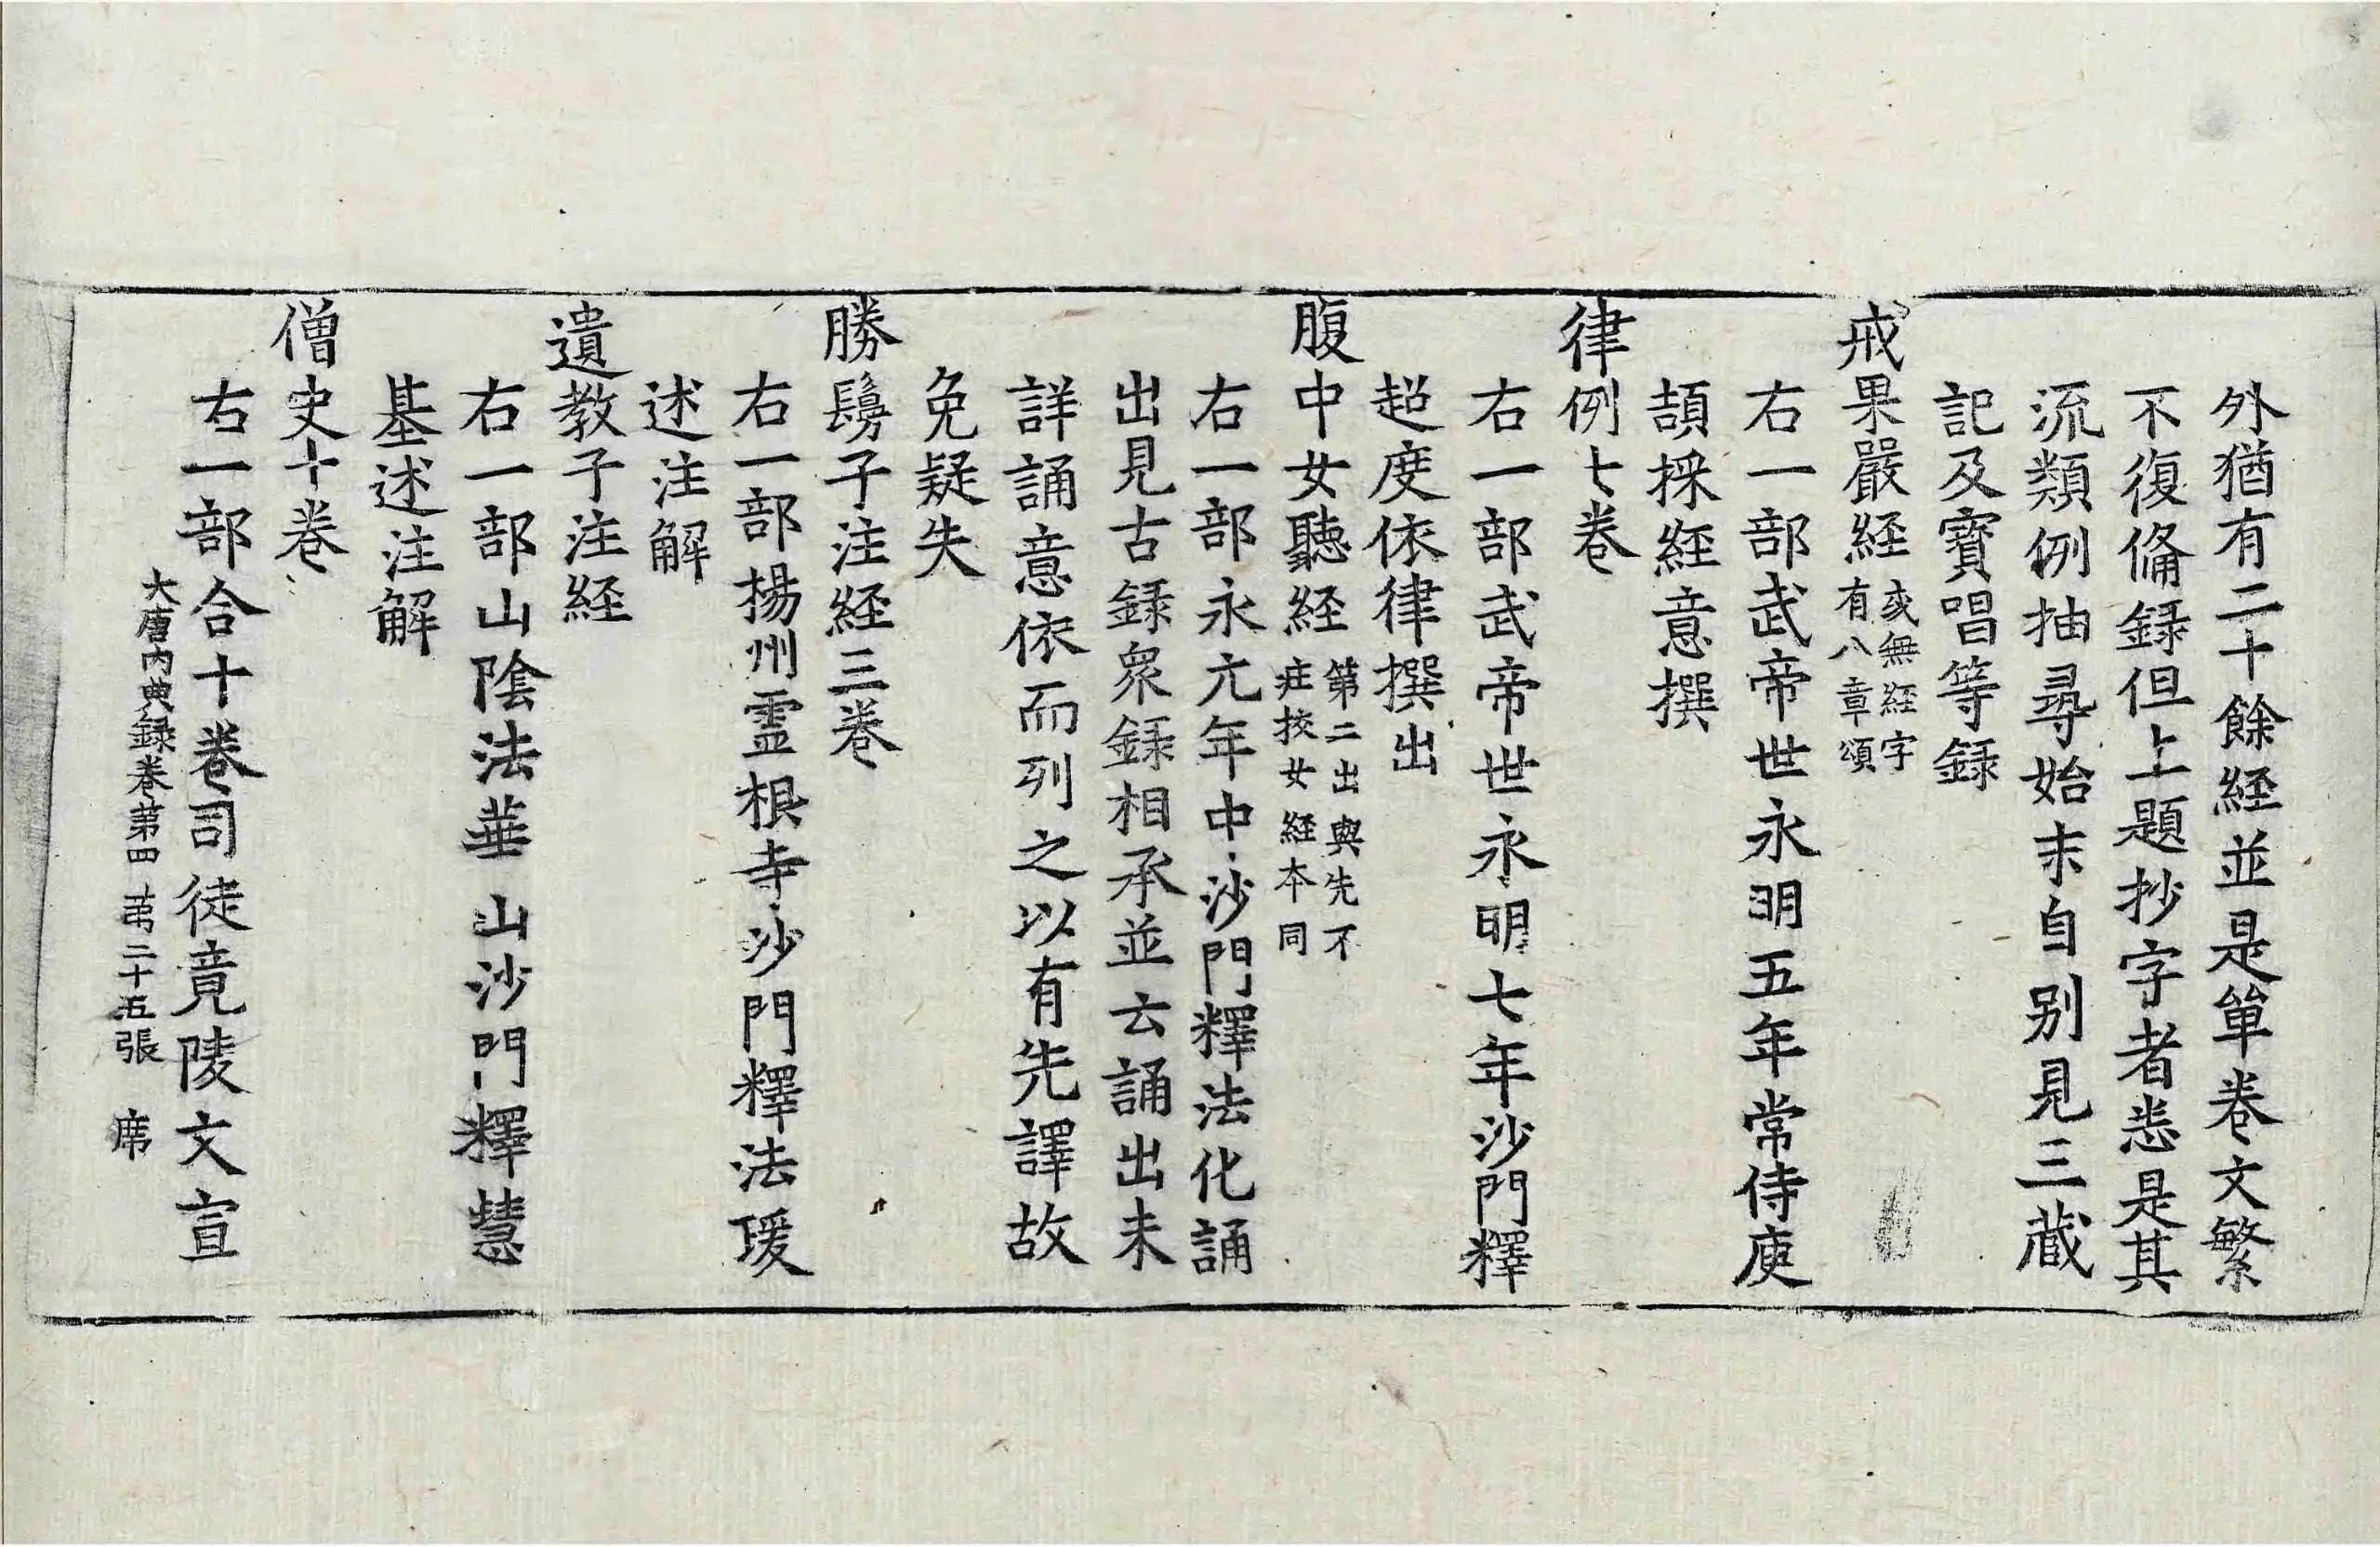 外猶有二十餘経並是單卷文繁
不復俻録但上題抄字者悉是其
流類例抽尋始末自别見三藏
記及寶唱等録
戒果嚴経或無経字有八章頌
右一部武帝世永明五年常侍庾
頡採経意撰
律例七卷
右一部武帝世永明七年沙門釋
超度依律撰出
腹中女聽経第二出與先不庄挍女経本同
右一部永元年中沙門釋法化誦
出見古録衆録相承並云誦出未
詳誦意依而列之以有先譯故
免疑失
勝鬘子注経三卷
右一部揚州靈根寺沙門釋法瑗
述注解
遺教子注経
右一部山陰法華山沙門釋慧
基述注解
僧史十卷
右一部合十卷司徒竟陵文宣
大唐内典録卷第四 第二十五張 席